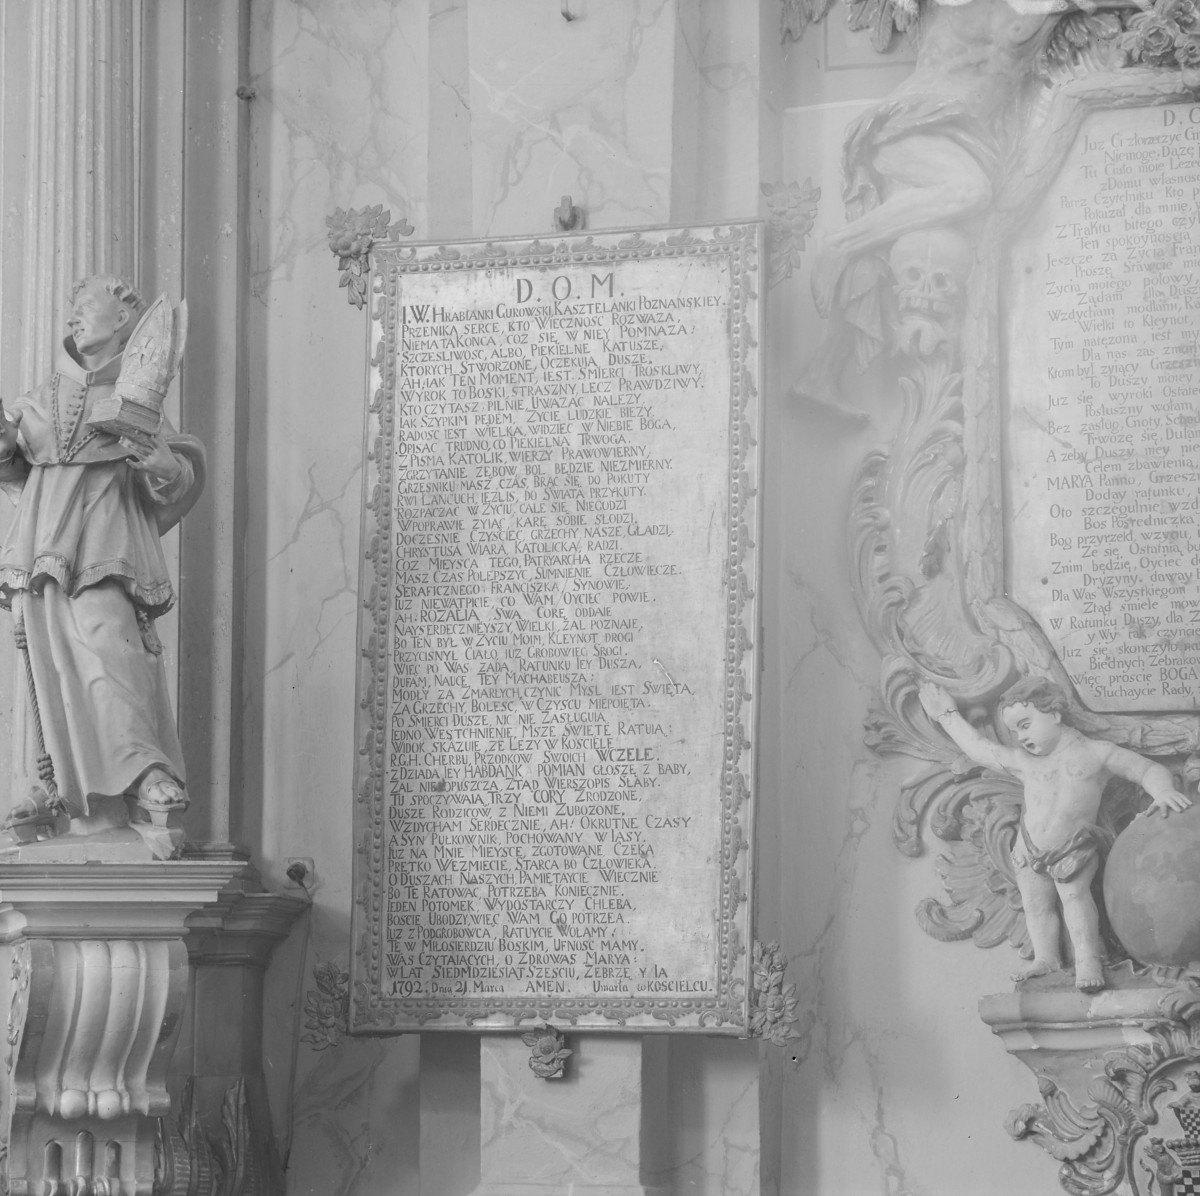 D. O. M.
J.W. HRABIANKI GUROWSKI, KASZTELANKI POZNANSKIEY.
PRZENIKA SERCE, KTO WIECZNOSC ROZWAZA,
NIEMATAKONCA, COZ SIĘ W NIEY POMNAZA?
SZCZESLIWOSC, ALBO, PIEKIELNE KATUSZE,
KTORYCH, STWORZONE, OCZEKUJĄ DUSZE.
AH, IAK TEN MOMENT, IEST SMIERCI TROSKLIWY,
WYROK TO BOSKI, STRASZNY, LECZ PRAWDZIWY,
KTO CZYTASZ, PILNIE, UWAZAC NALEZY,
IAK SZYPKIM PĘDEM, ZYCIE LUDZKIE BIEZY.
RADOSC IEST WIELKA, WIDZIEC W NIEBIE BOGA,
OPISAC TRUDNO, CO PIEKIELNA TRWOGA.
Z PISMA KATOLIK, WIERZY PRAWOWIERNY,
ZGRZYTANIE ZĘBOW, BOL BĘDZIE NIEZMIERNY.
GRZESNIKU MASZ CZAS, BRAC SIĘ DO POKUTY,
RWI LANCUCH, IEZLIS, DO SWIATA PRZYKUTY.
ROZPACZAC W ZYCIU, CALE SIĘ NIEGODZI,
WPOPRAWIE ZYIAC, KARĘ SOBIE SLODZI.
DOCZESNIE CZYSCIEC, GRZECHY NASZE, GLADZI,
CHRYSTUSA WIARA, KATOLICKA, RADZI.
COZ MIEYSCA TEGO, PATRYARCHA RZECZE,
MASZ CZAS POLEPSZYC, SUMNIENIE CZŁOWIECZE.
SERAFICZNEGO FRANCISZKA, SYNOWIE,
IUZ NIEWATPICIE, CO WAM OYCIEC POWIE.
AH! ROZALIA SWĄ CORĘ ODDAIE
NAYSERDECZNIEYSZY WIELKI ŻAL POZNAIE,
BO TEN BYŁ W ZYCIU MOIM, KLEYNOT DROGI
PRZYCISNYŁ CIAŁO JUZ GROBOWIEC SROGI.
WIEC PO WAS ZADA, RATUNKU IEY DUSZA,
DUFAM, NAUCE, TEY MACHABEUSZA:
MODŁY ZA ZMARLYCH, CZYNIC MYSL IEST SWIĘTA,
ZA GRZECHY, BOLESC, W CZYSCU NIEPOIĘTA.
PO SMIERCI DUSZE, NIC NIE ZASŁUGUIA
IEDNO WESTCHNIENIE, MSZE SWIĘTE RATUIĄ:
WIDOK SKAZUIE, ZE LEZY W KOSCIELE.
R.G.H. CHERBU, PRZODKOW SWOICH WCZELE.
Z DZIADA IEY HABDANK, POMIAN GŁOSZĘ Z BABY,
ŻAL NIEDOPUSZCZA, ZTĄD WIERSZOPIS SŁABY.
TU SPOCZYWAIĄ, TRZY CORY ZRODZONE,
DUSZE RODZICOW, Z NIEMI ZUBOZONE,
WZDYCHAM SERDECZNIE, AH! OKRUTNE CZASY
A SYN PUŁKOWNIK, POCHOWANY W IASY.
JUZ NA MNIE MIEYSCE, ZGOTOWANE CZEKA
PRĘTKO WEZMIECIE, STARCA BO CZŁOWIEKA.
O DUSZACH NASZYCH, PAMIĘTAYCIE WIECZNIE
BO TE RATOWAC, POTRZEBA KONIECZNIE.
IEDEN POTOMEK, WYDOSTARCZY CHLEBA,
BOSCIE UBODZY, WIĘC WAM GO POTRZEBA.
JUZ Z PODGROBOWCA, RATUYCIE WOLAMY,
TE W MIŁOSIERDZIU BOSKIM, UFNOSC MAMY.
WAS CZYTAIĄCYCH, O ZDROWAS MARYA
WLAT SIEDMDZIESIĄT SZESCIU, ZEBRZĘ Y IA
1792. Dnia 21. Marca AMEN. Umarła w KOSCIELCU.
D. O
Juz Ci złorzeczyc
Niemogę, Dązę
Tu Ciało moie Lezy
z Domu własnosc
Patrz Czytelniku Kto
Pokazał dla mnie,
Z Traktu bitego czy
Ten spokoynoscią
Jeszcze za Zycia
Proszę Stawcie
Zycia moiego połowy
Ządam dla Duszy
Wzdycham modłami,
Wielki to Kleynot
Tym natęzona, iest
Dla nas zas zmarłych
Ktom był zyiący Grzeszny
To Duszy moiey
Juz się wyroki Ostatnie
Posłuszny wołam
Bez zasług, Cnoty,
Trwozę się, Dufam
A zeby Duszy mey nie
Celem zbawienia
MARYA Panno, Grzeszny
Doday ratunku,
Oto szczegulnie
Bos Posredniczko
Bog przyrzekł,
Ze się Ostatnia
Znim, będę, Oyciec
Druzyny, dawały
Dla Was Wszystkiegom
Ztąd smiele mowię
W Ratunku Duszy, dla
y Wy tak czyn
Juz się skonczyło
Biednych Zebrak
Więc prosicie BOGA
Słuchaycie Rady